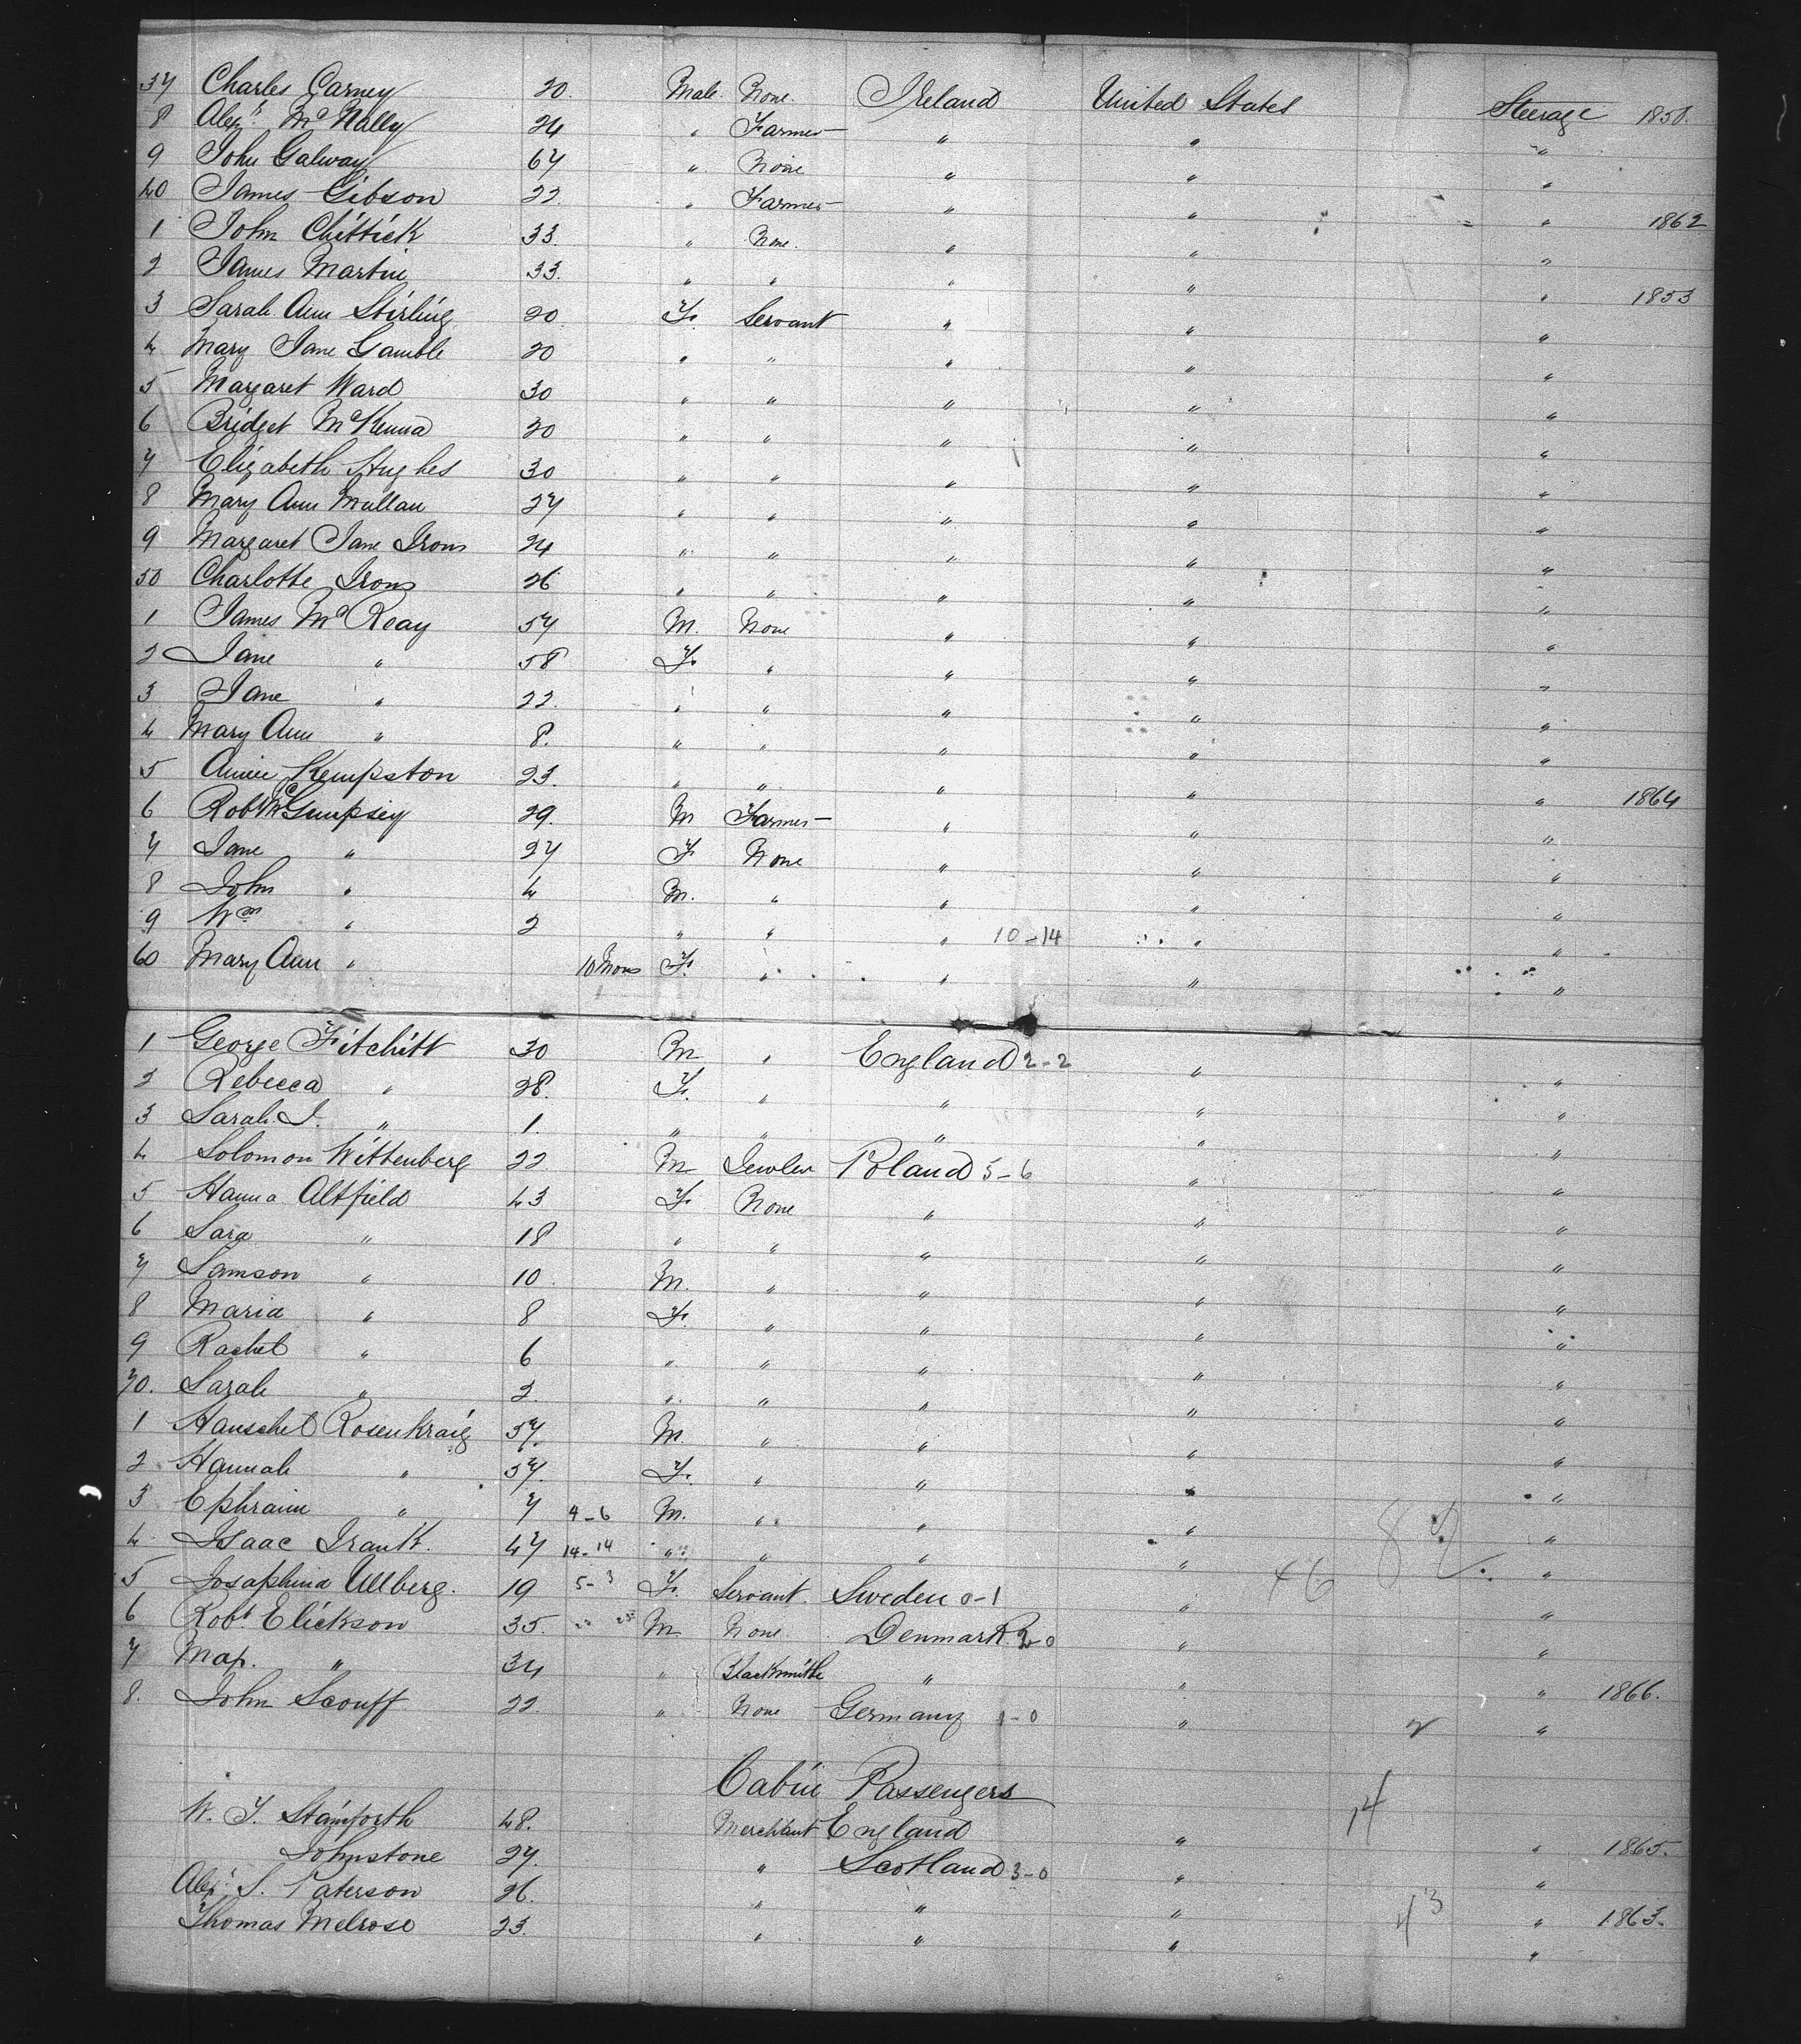 37 Charles Carney 20. Male. None. Ireland United States Steerage 1858.
8 Alexr. McNally 24 " Farmer " " "
9 John Galway 67 " None " " "
40 James Gibson 22 " Farmer " " " 1862
1 John Chittick 33. " None. " " "
2 James Martin 33. " " " " " 1853
3 Sarah Ann Stirling 20 F. Servant " " "
4 Mary Jane Gamble 20 " " " " "
5 Margaret Ward 30 " " " " "
6 Bridget McKenna 20 " " " " "
7 Elizabeth Hughes 30 " " " " "
8 Mary Ann Mullan 27 " " " " "
9 Margaret Jane Irons 24 " " " " "
50 Charlotte Irons 26 " " " " "
1 James McReay 57 M. None " " "
2 Jane " 58 F. " " " "
3 Jane " 22. " " " " "
4 Mary Ann " 8. " " " " "
5 Annie Kempston 23. " " " " " 1864
6 Robt McGimpsey 29. M Farmer " " "
7 Jane " 27 F None " " "
8 John " 4 M. " " " "
9 Wm " 2 " " " 10-14 " "
60 Mary Ann " 10 Mos F. " " " "
1 George Fitchitt 30 M " England 2-2 " "
2 Rebecca " 28. F. " " " "
3 Sarah J. " 1. " " " " "
4 Solomon Wittenberg 22. M Jewler Poland 5-6 " "
5 Hanna Altfield 43 F. None " " "
6 Sara " 18 " " " " "
7 Samson " 10. M. " " " "
8 Maria " 8 F. " " " "
9 Rachel " 6 " " " " "
70. Sarah " 2. " " " " "
1 Hauschel Rosenkraig 57. M. " " " "
2 Hannah " 57. F. " " " "
3 Ephraim " 7 4-6 M. " " " "
4. Isaac Frank. 47 14-14 " " " " "
5 Josaphina Ullberg. 19 5-3 F. Servant. Sweden 0-1 " 46 "
6 Robt. Elickson 35. M None. Denmark 2-0 " "
7 Map. " 34 " Blacksmith " " " 1866.
8. John Scouff 22. " None Germany 1-0 " 2 "
Cabin Passengers
W. J. Stainforth 48. Merchant England " 14 " 1865.
Johnstone 27. " Scotland 3-0 " "
Alexr. S. Paterson 26. " " " " 1863.
Thomas Melrose 23. " " " "